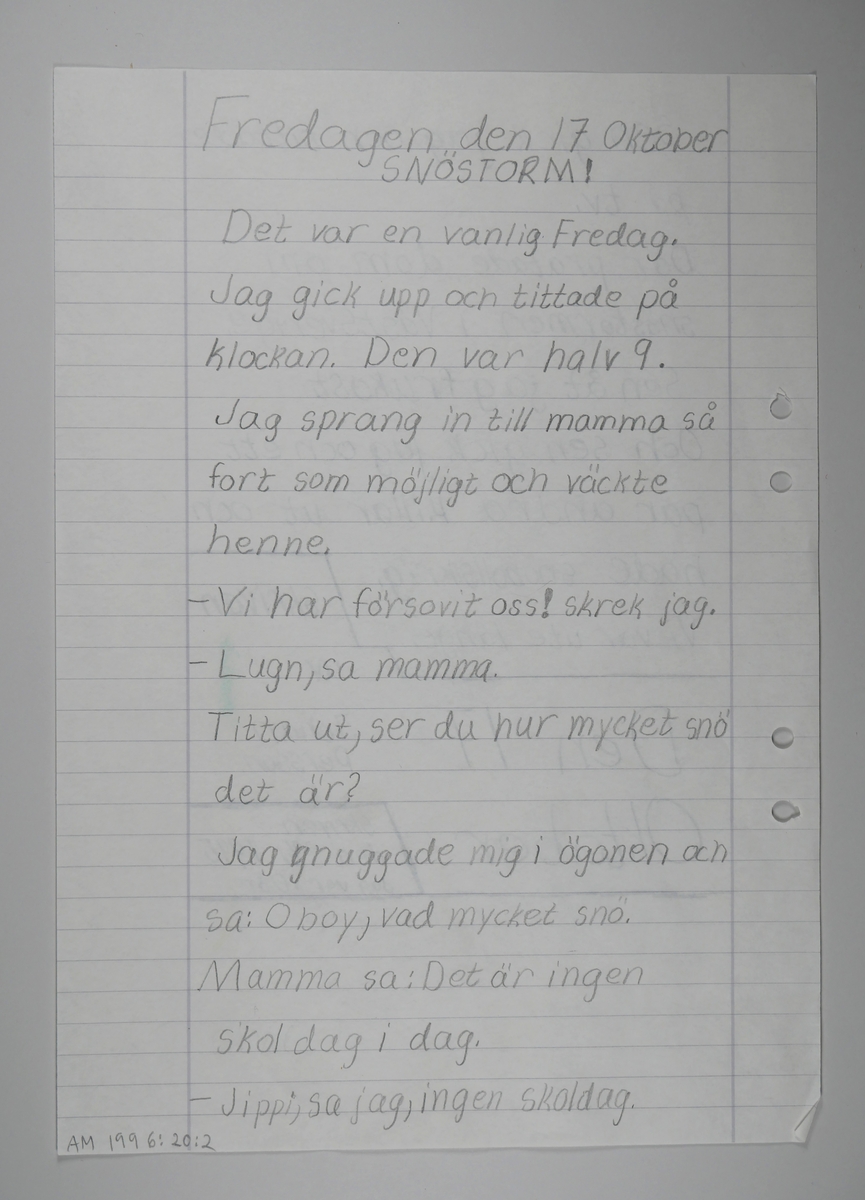 Fredagen den 17 Oktober
SNÖSTORM!
Det var en vanlig Fredag.
Jag gick upp och tittade på
klockan. Den var halv 9.
Jag sprang in till mamma så
fort som möjligt och väckte
henne.
- Vi har försovit oss! skrek jag.
- Lugn, sa mamma.
Titta ut, ser du hur mycket snö
det är?
Jag gnuggade mig i ögonen och
sa: Oboy, vad mycket snö.
Mamma sa: Det är ingen
skoldag i dag.
- Jippi, sa jag, ingen skoldag.
AM 1996:20:2